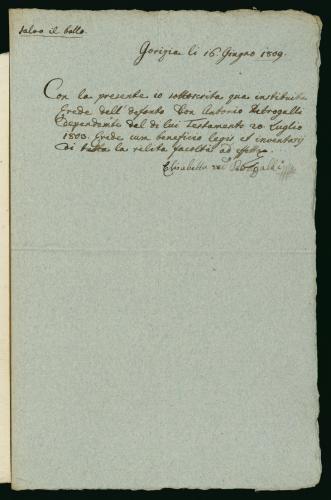 salvo il bollo.
Gorizia li 16. Giugno 1809.
Con la presente io sottoscrita qua instituita
Erede dell' defonto Don Antonio
dependente dal di lui Testamento 20. Luglio
1800. Erede cum beneficio legis et inventarij
di tutta la relita facoltà ad
Elisabetta